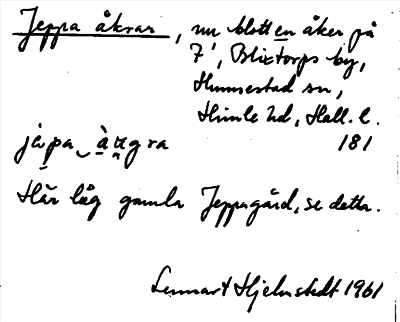 Jeppa åkrar, nu blott en åker på
7', Blixtorps by,
Hunnestad sn,
Himle hd, Hall. l.
181
Här låg gamla Jeppagård, se detta.
Lennart Hjelmstedt 1961